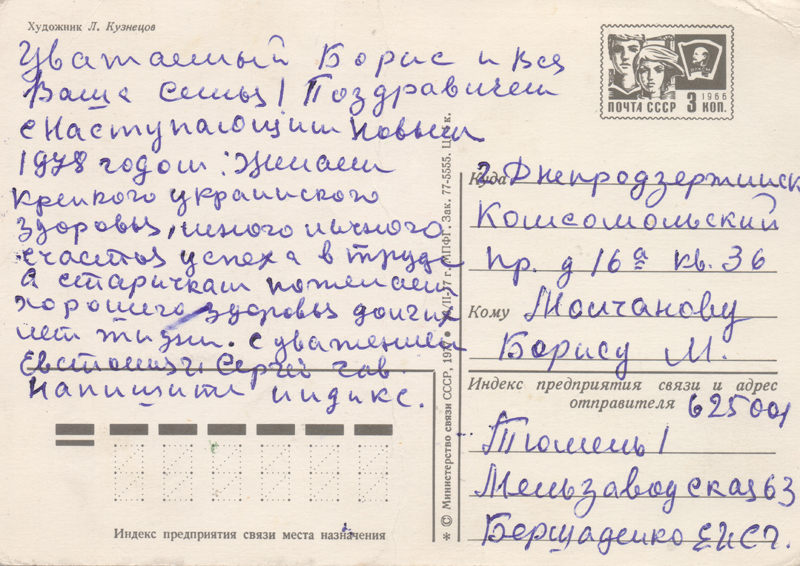 Художник Л. Кузнецов
Уважаемый Борис и вся
Ваша семья! Поздравляем
с наступающим новым
1978 годом: Желаем
крепкого украинского
здоровья, много личного
счастья успеха в труде
А старичкам пожелаем
хорошего здоровья долгих
лет жизни. с уважением
Сергей
Напишите индекс.
Индекс предприятия связи места назначения
* © Министерство связи СССР, 1977 МПФГ. Зак. 77-5555. Ц. 4 к.
ПОЧТА СССР 3 КОП.
1966
Куда г. Днепродзержинск
Комсомольский
пр. д 16а кв. 36
Кому Молчанову
Борису М.
Индекс предприятия связи и адрес
отправителя 625001
Тюмень 1
Мельзаводская 63
Бершаденко